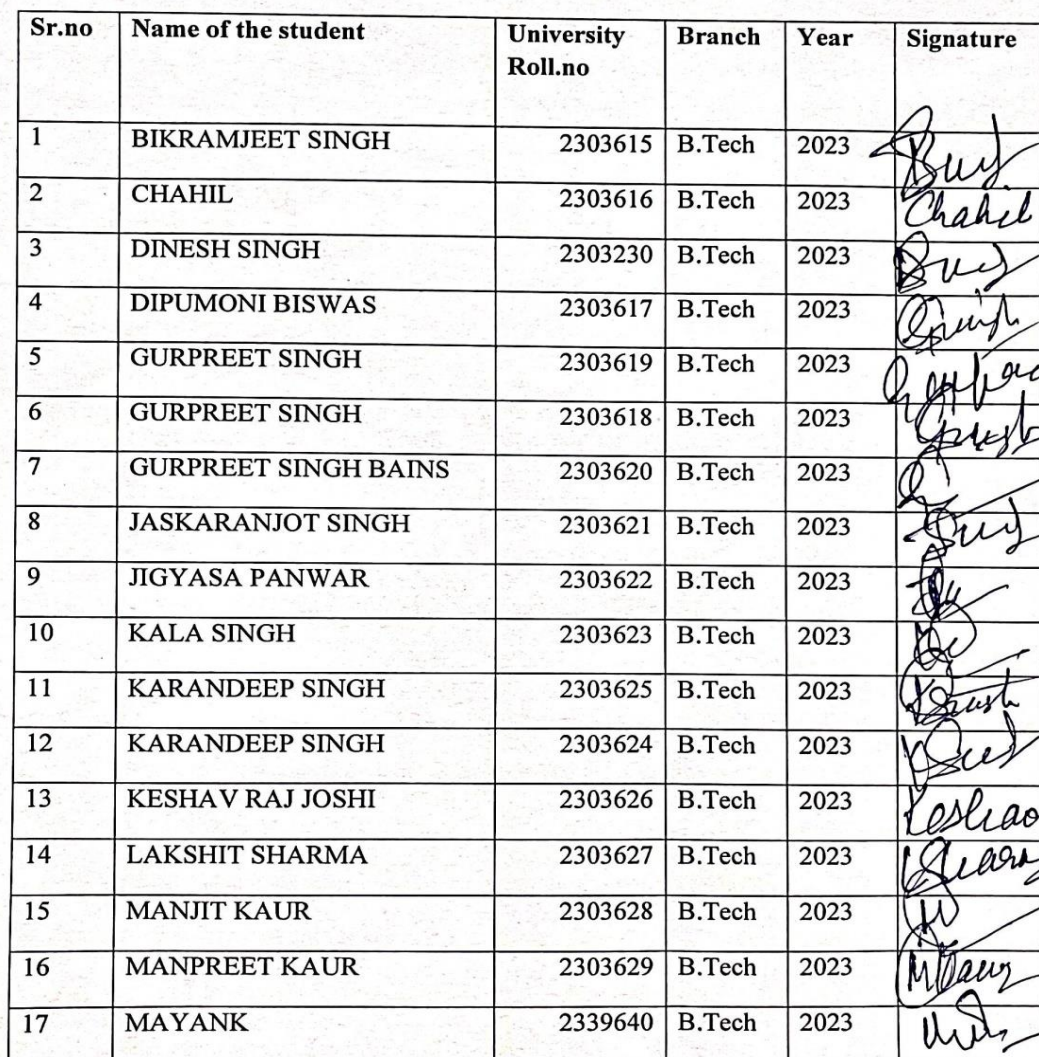 Sr.no Name of the student University Branch Year Signature
Roll.no
1 BIKRAMJEET SINGH 2303615 B.Tech 2023
2 CHAHIL 2303616 B.Tech 2023 Chahil
3 DINESH SINGH 2303230 B.Tech 2023
4 DIPUMONI BISWAS 2303617 B.Tech 2023
5 GURPREET SINGH 2303619 B.Tech 2023
6 GURPREET SINGH 2303618 B.Tech 2023
7 GURPREET SINGH BAINS 2303620 B.Tech 2023
8 JASKARANJOT SINGH 2303621 B.Tech 2023
9 JIGYASA PANWAR 2303622 B.Tech 2023
10 KALA SINGH 2303623 B.Tech 2023
11 KARANDEEP SINGH 2303625 B.Tech 2023
12 KARANDEEP SINGH 2303624 B.Tech 2023
13 KESHAV RAJ JOSHI 2303626 B.Tech 2023
14 LAKSHIT SHARMA 2303627 B.Tech 2023
15 MANJIT KAUR 2303628 B.Tech 2023
16 MANPREET KAUR 2303629 B.Tech 2023
17 MAYANK 2339640 B.Tech 2023